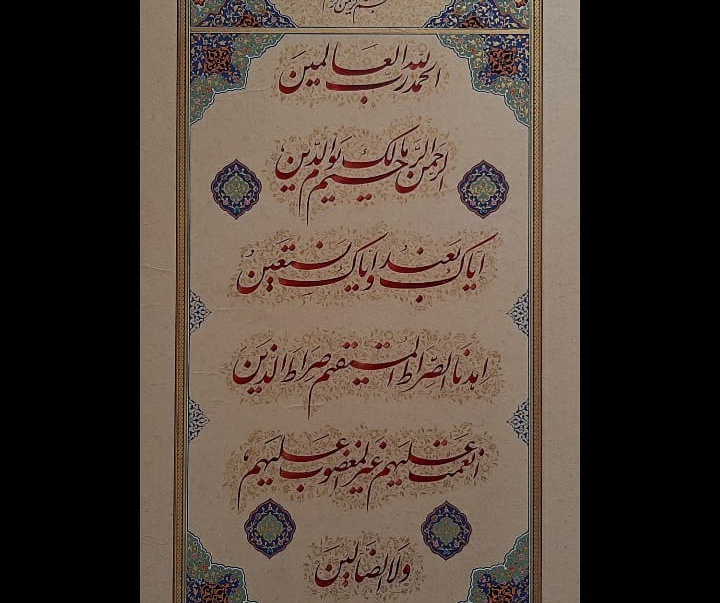 الحمد لله رب العالمين
الرحمن الرحیم مالک یوم الدین
ایاک نعبد و ایاک نستعین
اهدنا الصراط المستقیم صراط الذین
انعمت علیهم غیر المغضوب علیهم
ولا الضالین